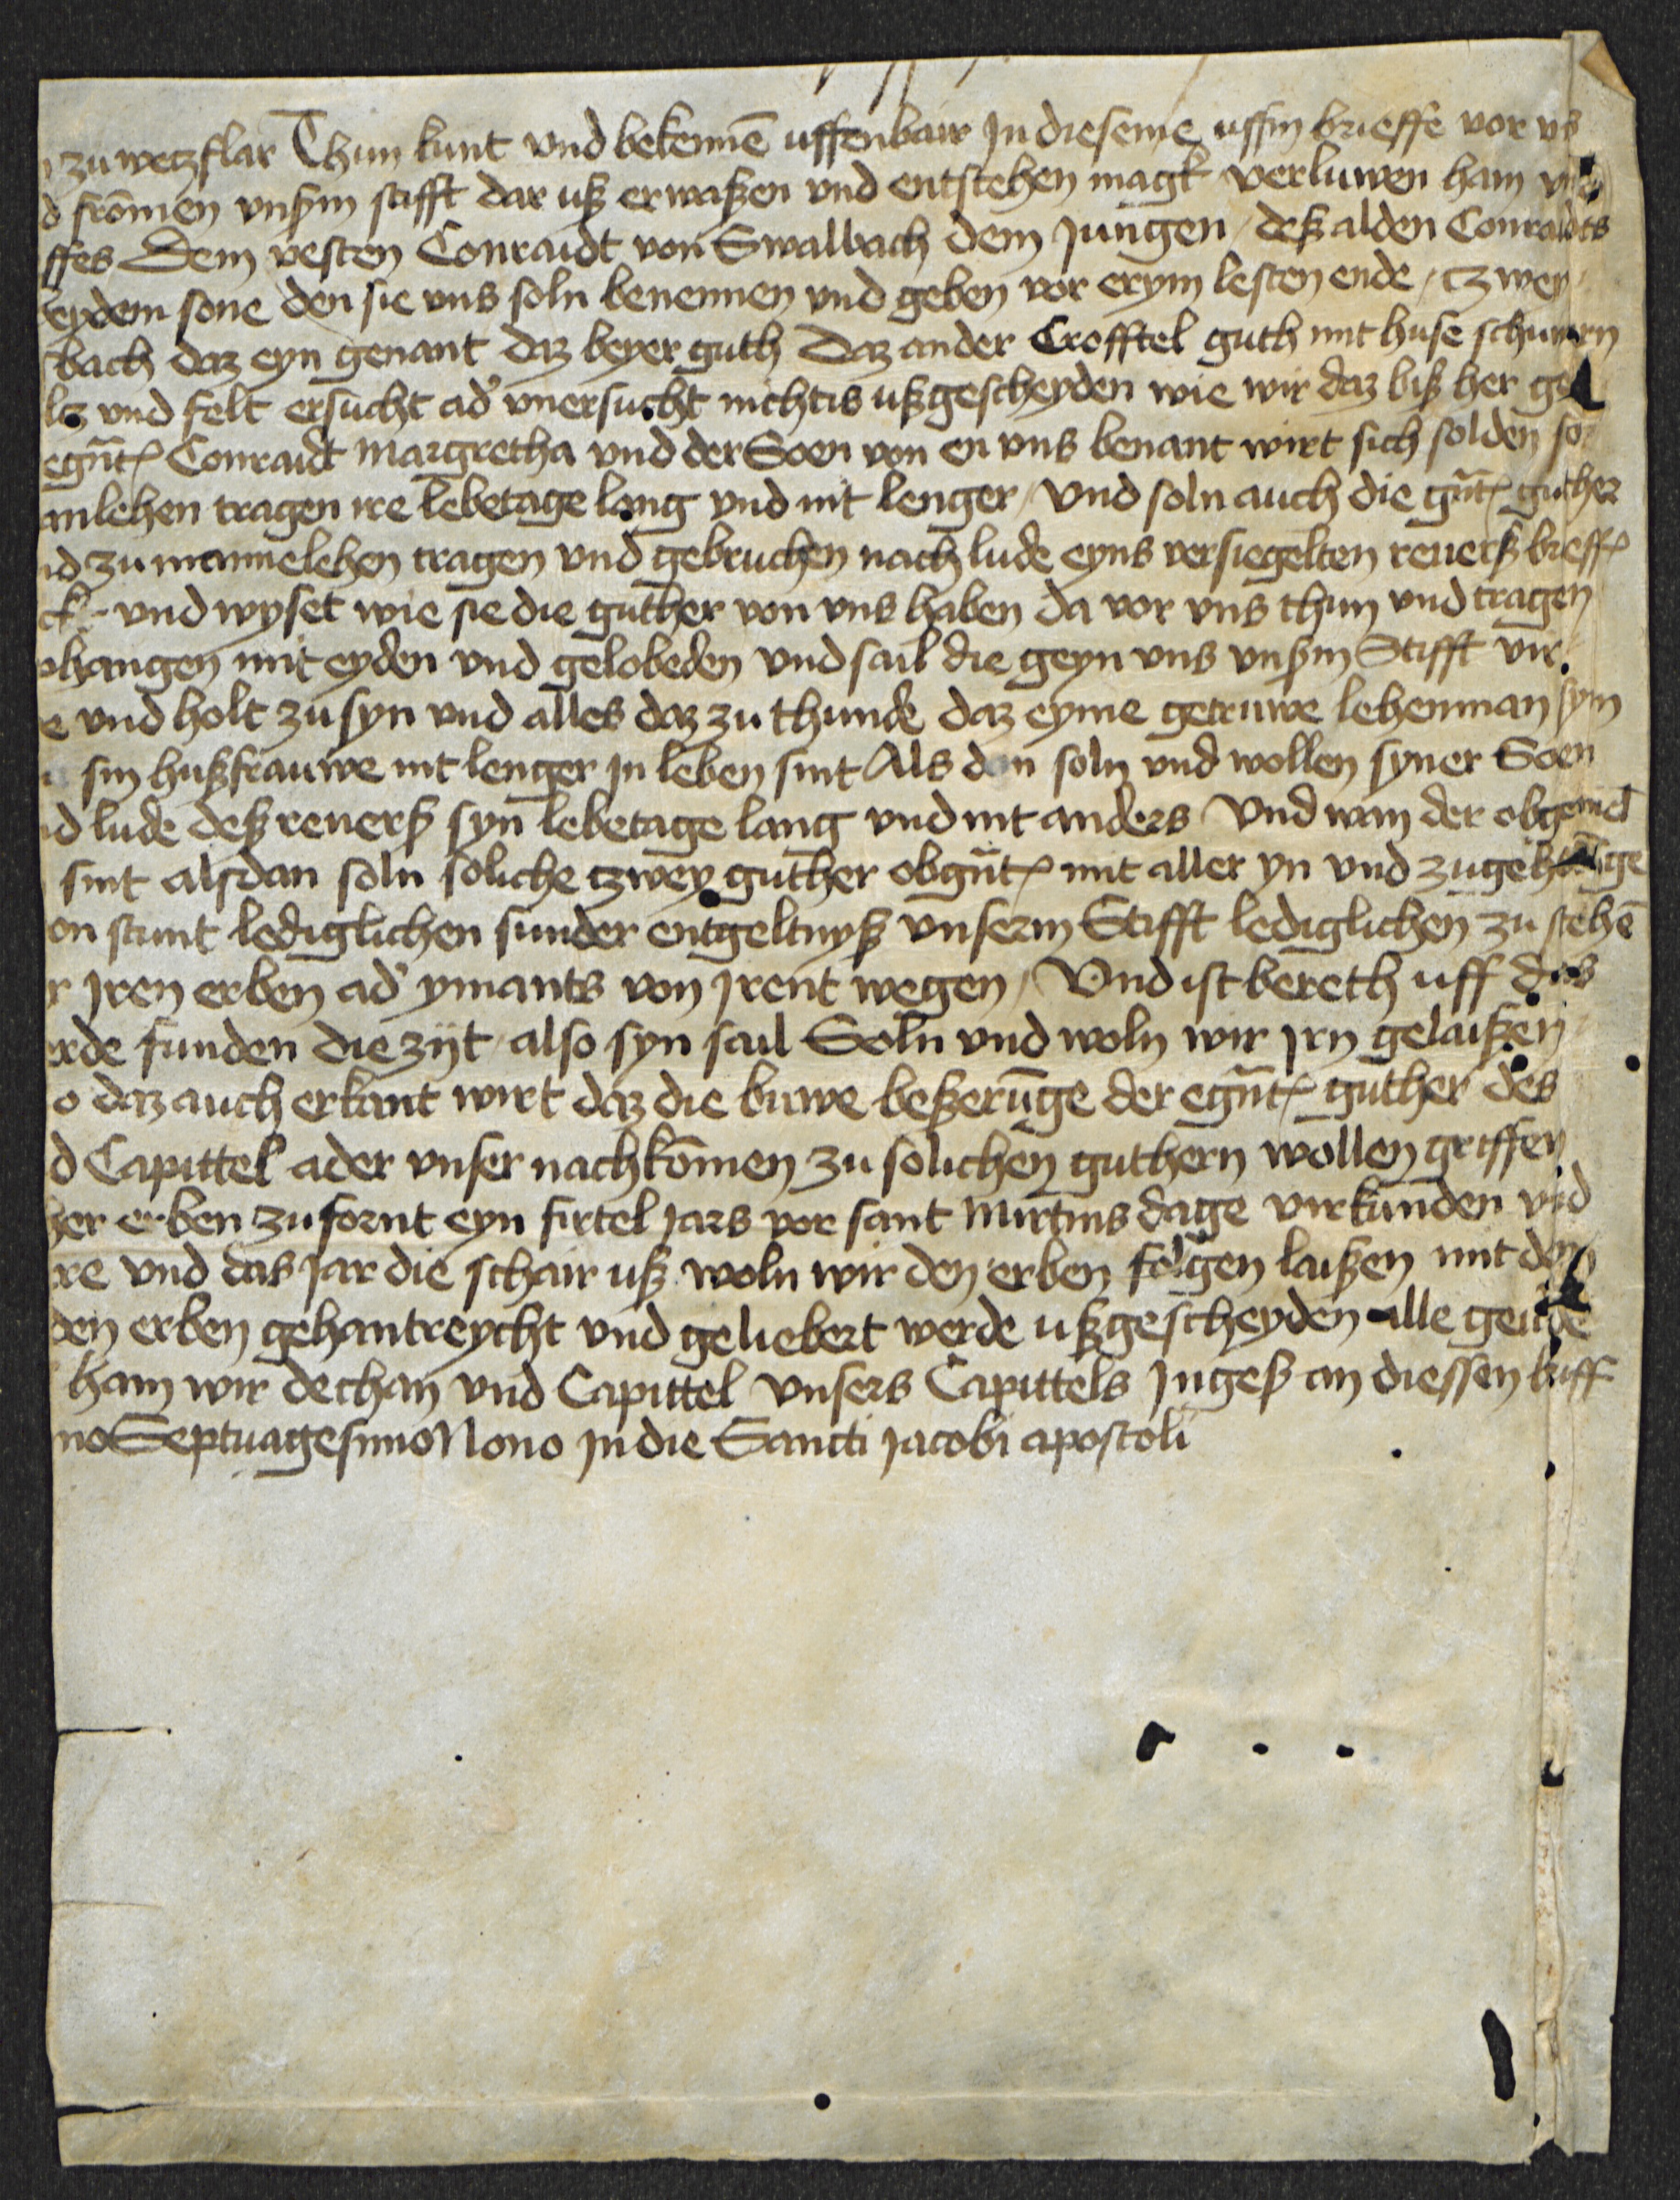 zu wetzflar Thun kunt vnd bekennē uffenbair Jn dieseme uffin brieffe vor vns
d frōmen vnßm stifft dar uß erwaßen vnd entstehen magk verluwen ham
ffes Dem vesten Conraidt von Swalbach dem Jungen / deß alden Conraidts
eydem sone den sie vns soln benennen vnd geben vor erym lesten ende / tzwey
bach daz eyn genant daz beyer guth Daz ander Crofftel guth mit huse schuwrn
ltz vnd felt ersucht ad' vnersucht nichtis ußgescheyden wie wir daz biß her
egūt Conraidt Margretha vnd der Soen von en vns benant wirt sich solden
anlehen tragen ire lebetage lang vnd nit lenger / Vnd soln auch die gūt guther
nd zu mannelehen tragen vnd gebruchen nach lude eyns versiegelten reuerß brieff
ck vnd wyset wie sie die guther von vns haben da vor vns thun vnd tragen
phangen mit eyden vnd gelobeden vnd sail die geyn vns vnßm Stifft
e vnd holt zu syn vnd alles daz zu thunde daz eyme getruwe lehenman syn
sin hußfrauwe nit lenger Jn leben sint Als dan soln vnd wollen syner Soen
nd lude deß reuerß syn lebetage lang vnd nit anders Vnd wan der
sint alsdan soln soliche tzwey guther obgūt mit aller yn vnd
on stunt lediglichen sunder entgeltnyß vnserm Stifft lediglichen zu stehē
r Jren erben ad' ymants von Jrent wegen / Vnd ist bereth uff
erde funden die zijt / also syn sail Soln vnd woln wir Jrn gelaißen
o daz auch erkant wirt daz die buwe beßerūge der egūt guther des
d Capittel ader vnser nachkōmen zu solichen guthern wollen griffen
her erben zu fornt eyn firtel Jars vor sant Mirtins dage virkunden vnd
re vnd das Jar die schair uß woln wir den erben folgen laißen mit
den erben gehantreycht vnd geliebert werde ußgescheyden alle
ham wir dechan vnd Capittel vnsers Capittels Jngeß an diessen briff
no Septuagesimo Nono Jn die Sancti Jacobi apostoli